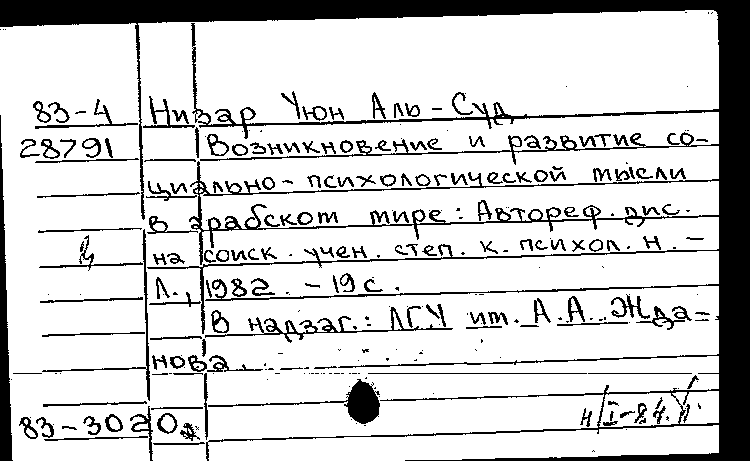 83-4 Низар Уюн Аль-Суд.
28791 Возникновение и развитие со-
циально-психологической мысли
в арабском мире: Автореф. дис.
на соиск. учен. степ. к. психол. н. -
Л., 1982. - 19 с.
В надзаг.: ЛГУ им. А.А. Жда-
нова.
83-3020